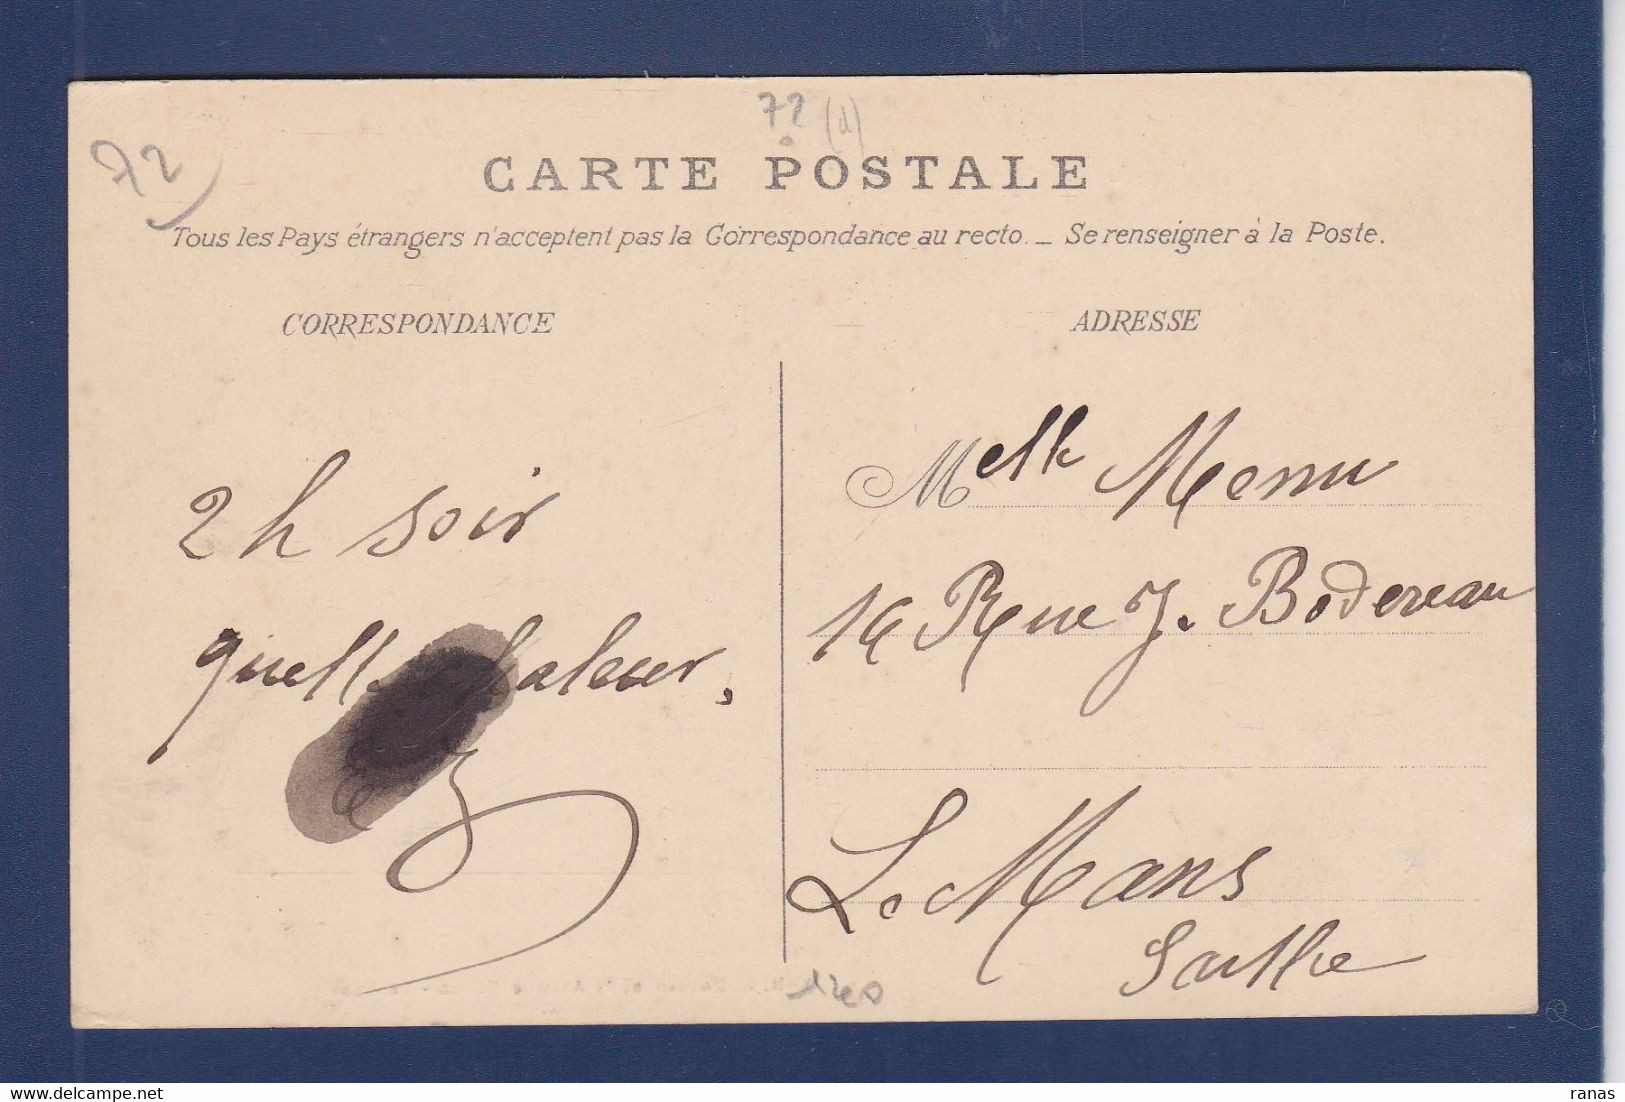 72
72 (d)
CARTE POSTALE
Tous les Pays étrangers n'acceptent pas la Correspondance au recto. _ Se renseigner à la Poste.
CORRESPONDANCE
ADRESSE
2 h soir
quelle chaleur,
Melle Menu
16 Rue J. Bodereau
Le Mans
Sarthe
1240
https://www.delcampe.net
ranas